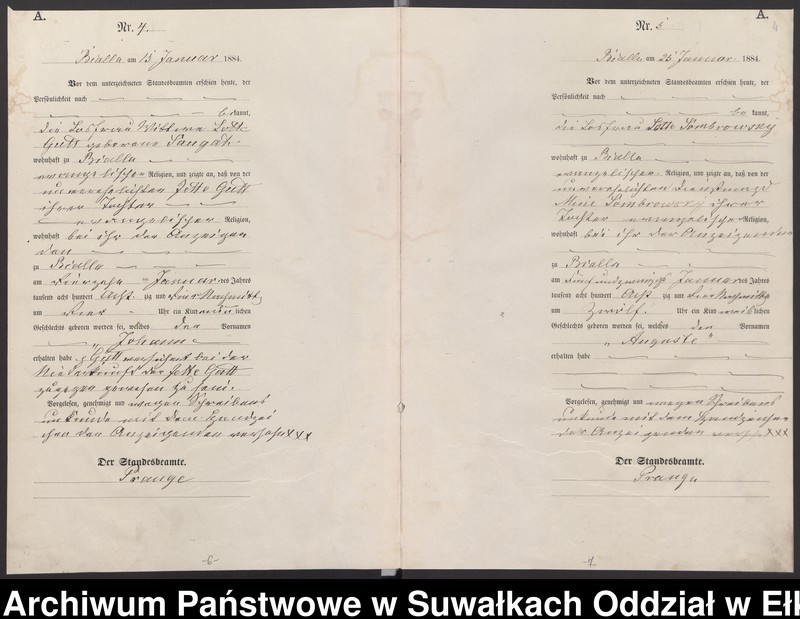 A.
Nr. 4.
Bialla am 15 Januar 1884.
Vor dem unterzeichneten Standesbeamten erschien heute, der
Persönlichkeit nach
be kannt,
die Losfrau Wittwe Lotte
Gutt geborene
wohnhaft zu Bialla
evangelischer Religion, und zeigte an, daß von der
unverehelichten Jette Gutt
ihrer Tochter
evangelischer Religion,
wohnhaft bei ihr der Anzeigen
den
zu Bialla
am vierzehn ten Januar des Jahres
tausend acht hundert Acht zig und vier Nachmittags
um vier Uhr ein Kind männlichen
Geschlechts geboren worden sei, welches den Vornamen
„Johann
erhalten habe. Gutt versichert bei der
Niederkunft der Jette Gutt
zugegen gewesen zu sein.
Vorgelesen, genehmigt und wegen Schreibens
unkunde mit dem Handzei
chen der Anzeigenden versehen XXX
Der Standesbeamte.
Prange
-6-
A.
4
Nr. 5
Bialla am 25 Januar 1884.
Vor dem unterzeichneten Standesbeamten erschien heute, der
Persönlichkeit nach
be kannt,
die Losfrau Lotte Dombrowsky
wohnhaft zu Bialla
evangelischer Religion, und zeigte an, daß von der
unverehelichten Dienstmagd
Dombrowsky ihrer
Tochter evangelischer Religion,
wohnhaft bei ihr der Anzeigenden
zu Bialla
am fünfundzwanzigsten Januar des Jahres
tausend acht hundert Acht zig und vier Nachmittags
um zwölf Uhr ein Kind weiblichen
Geschlechts geboren worden sei, welches den Vornamen
„Auguste"
erhalten habe
Vorgelesen, genehmigt und wegen Schreibens
unkunde mit dem Handzeichen
der Anzeigenden versehen XXX
Der Standesbeamte.
Prange
-7-
Archiwum Państwowe w Suwałkach Oddział w Ełk